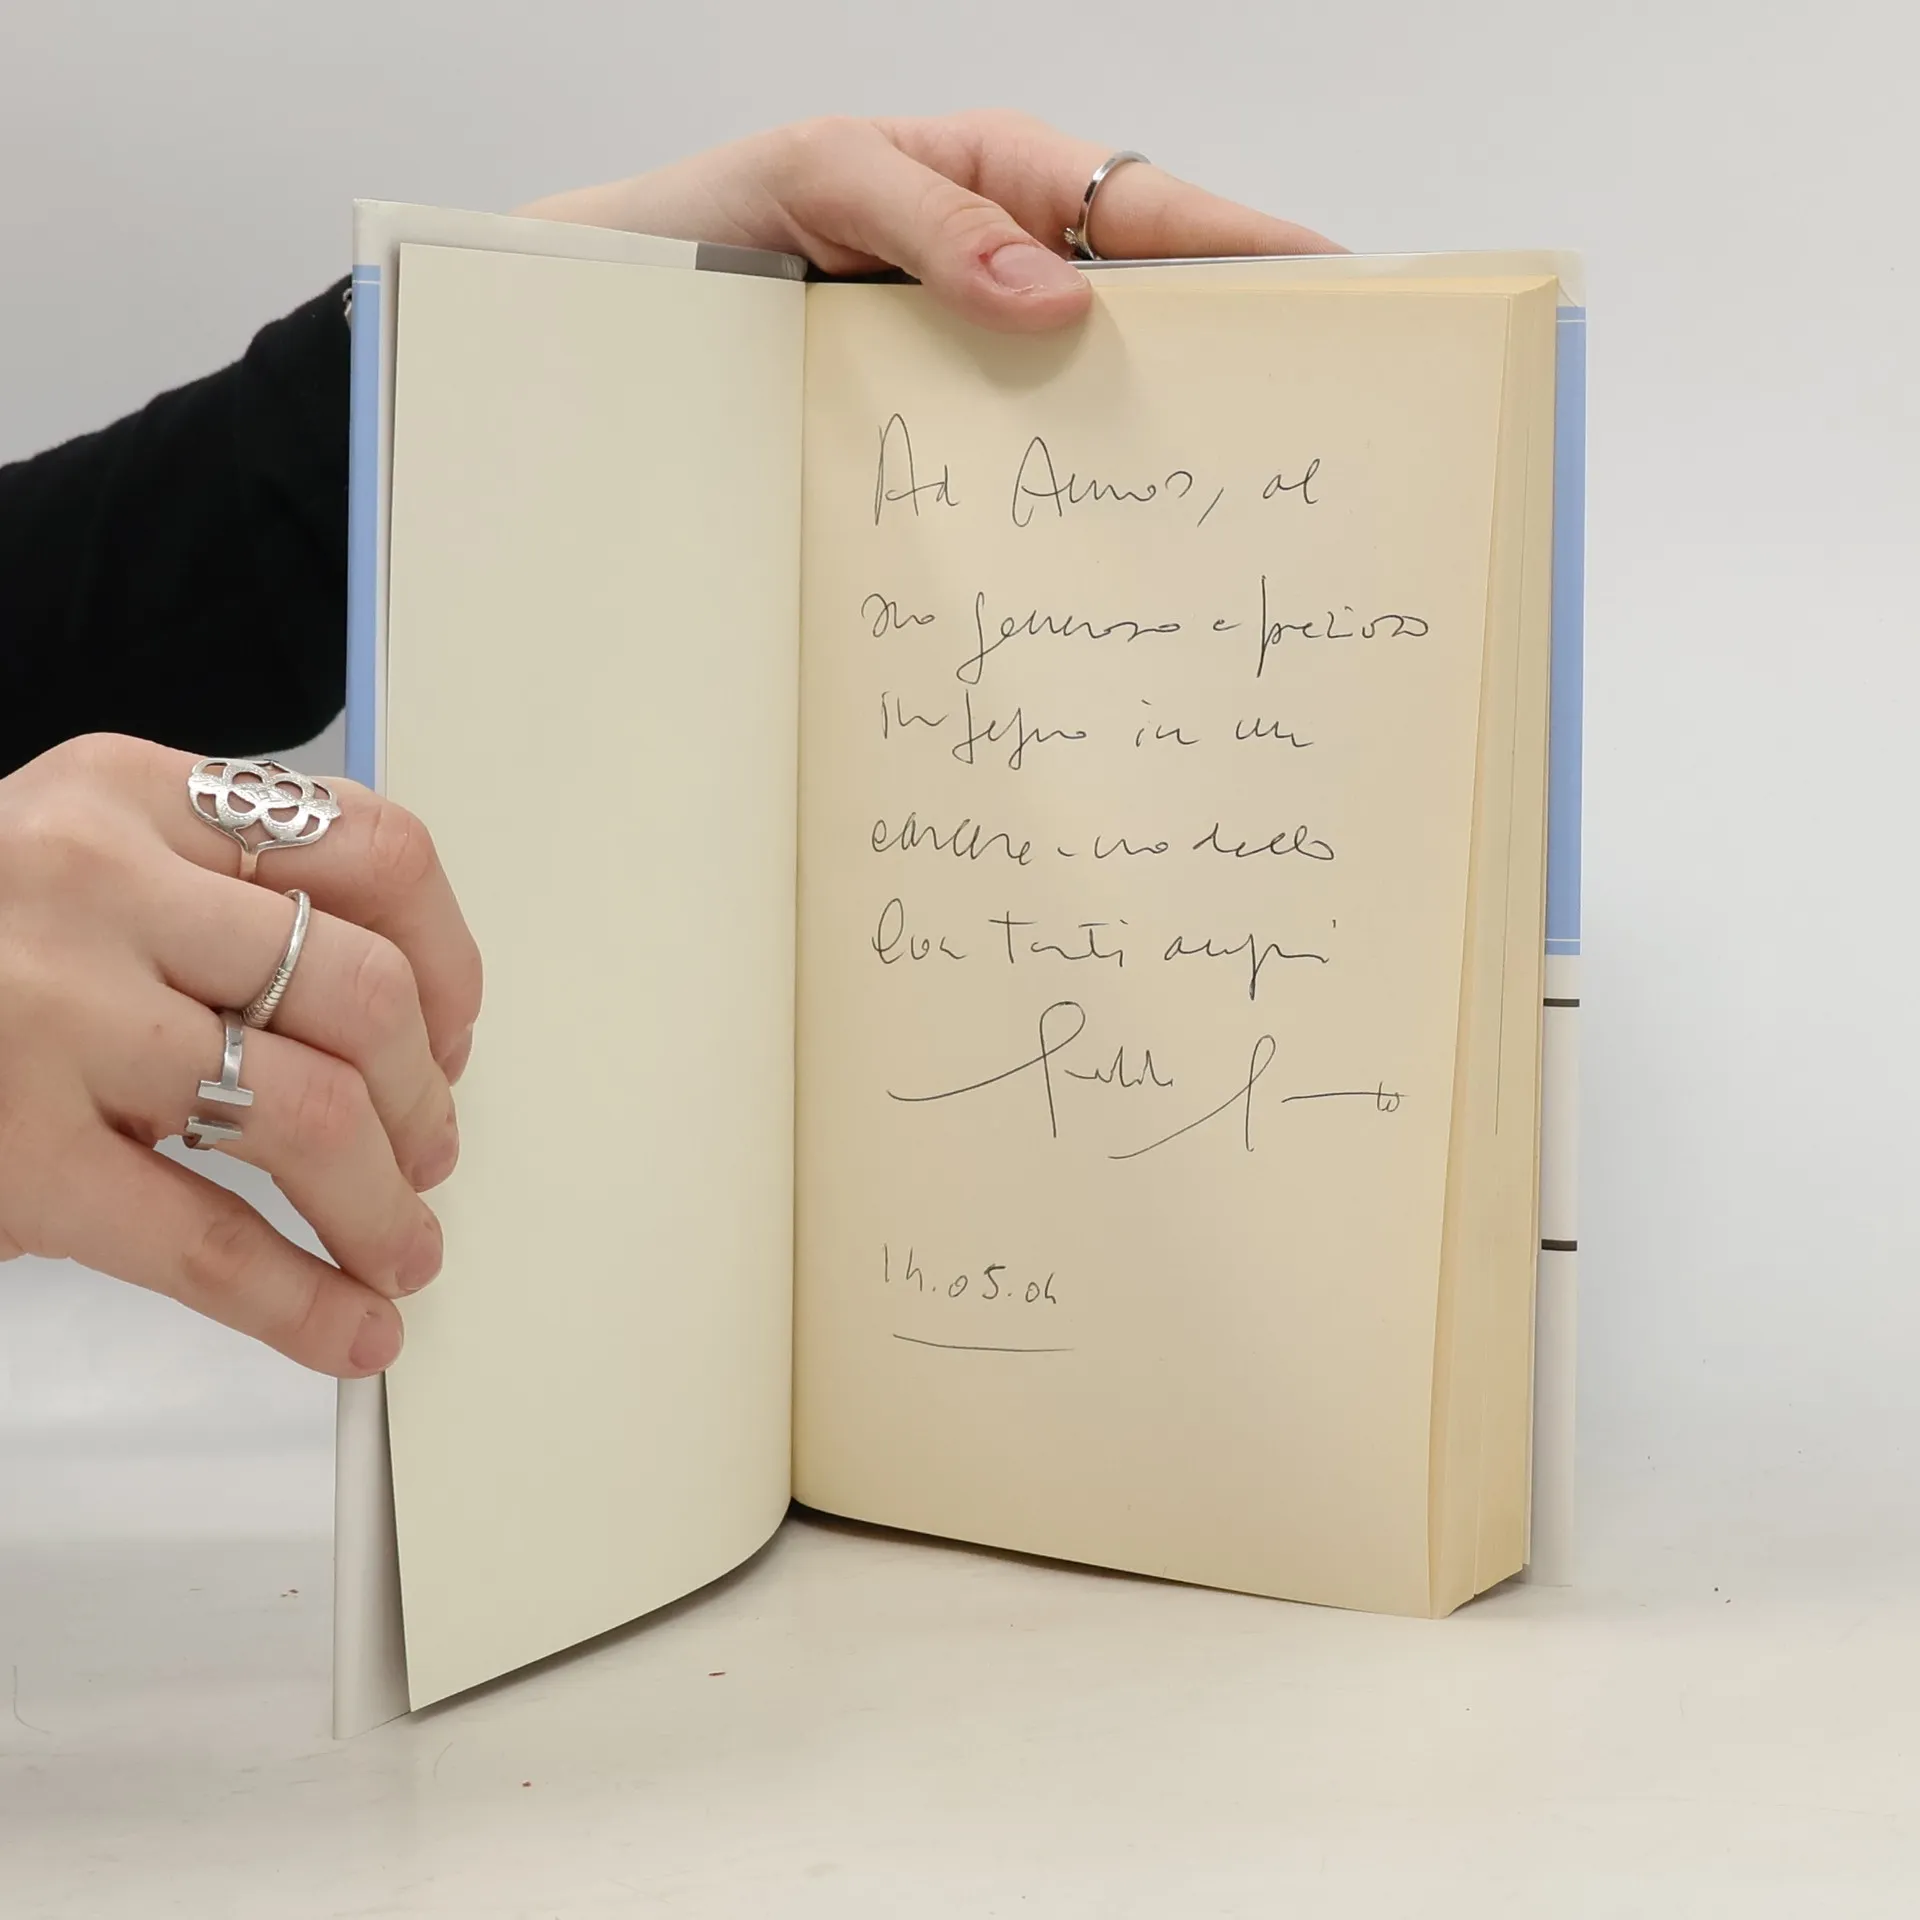 Ad Amos, al
suo generoso e prezioso
impegno in un
carcere-modello
Con tanti auguri
14.05.04